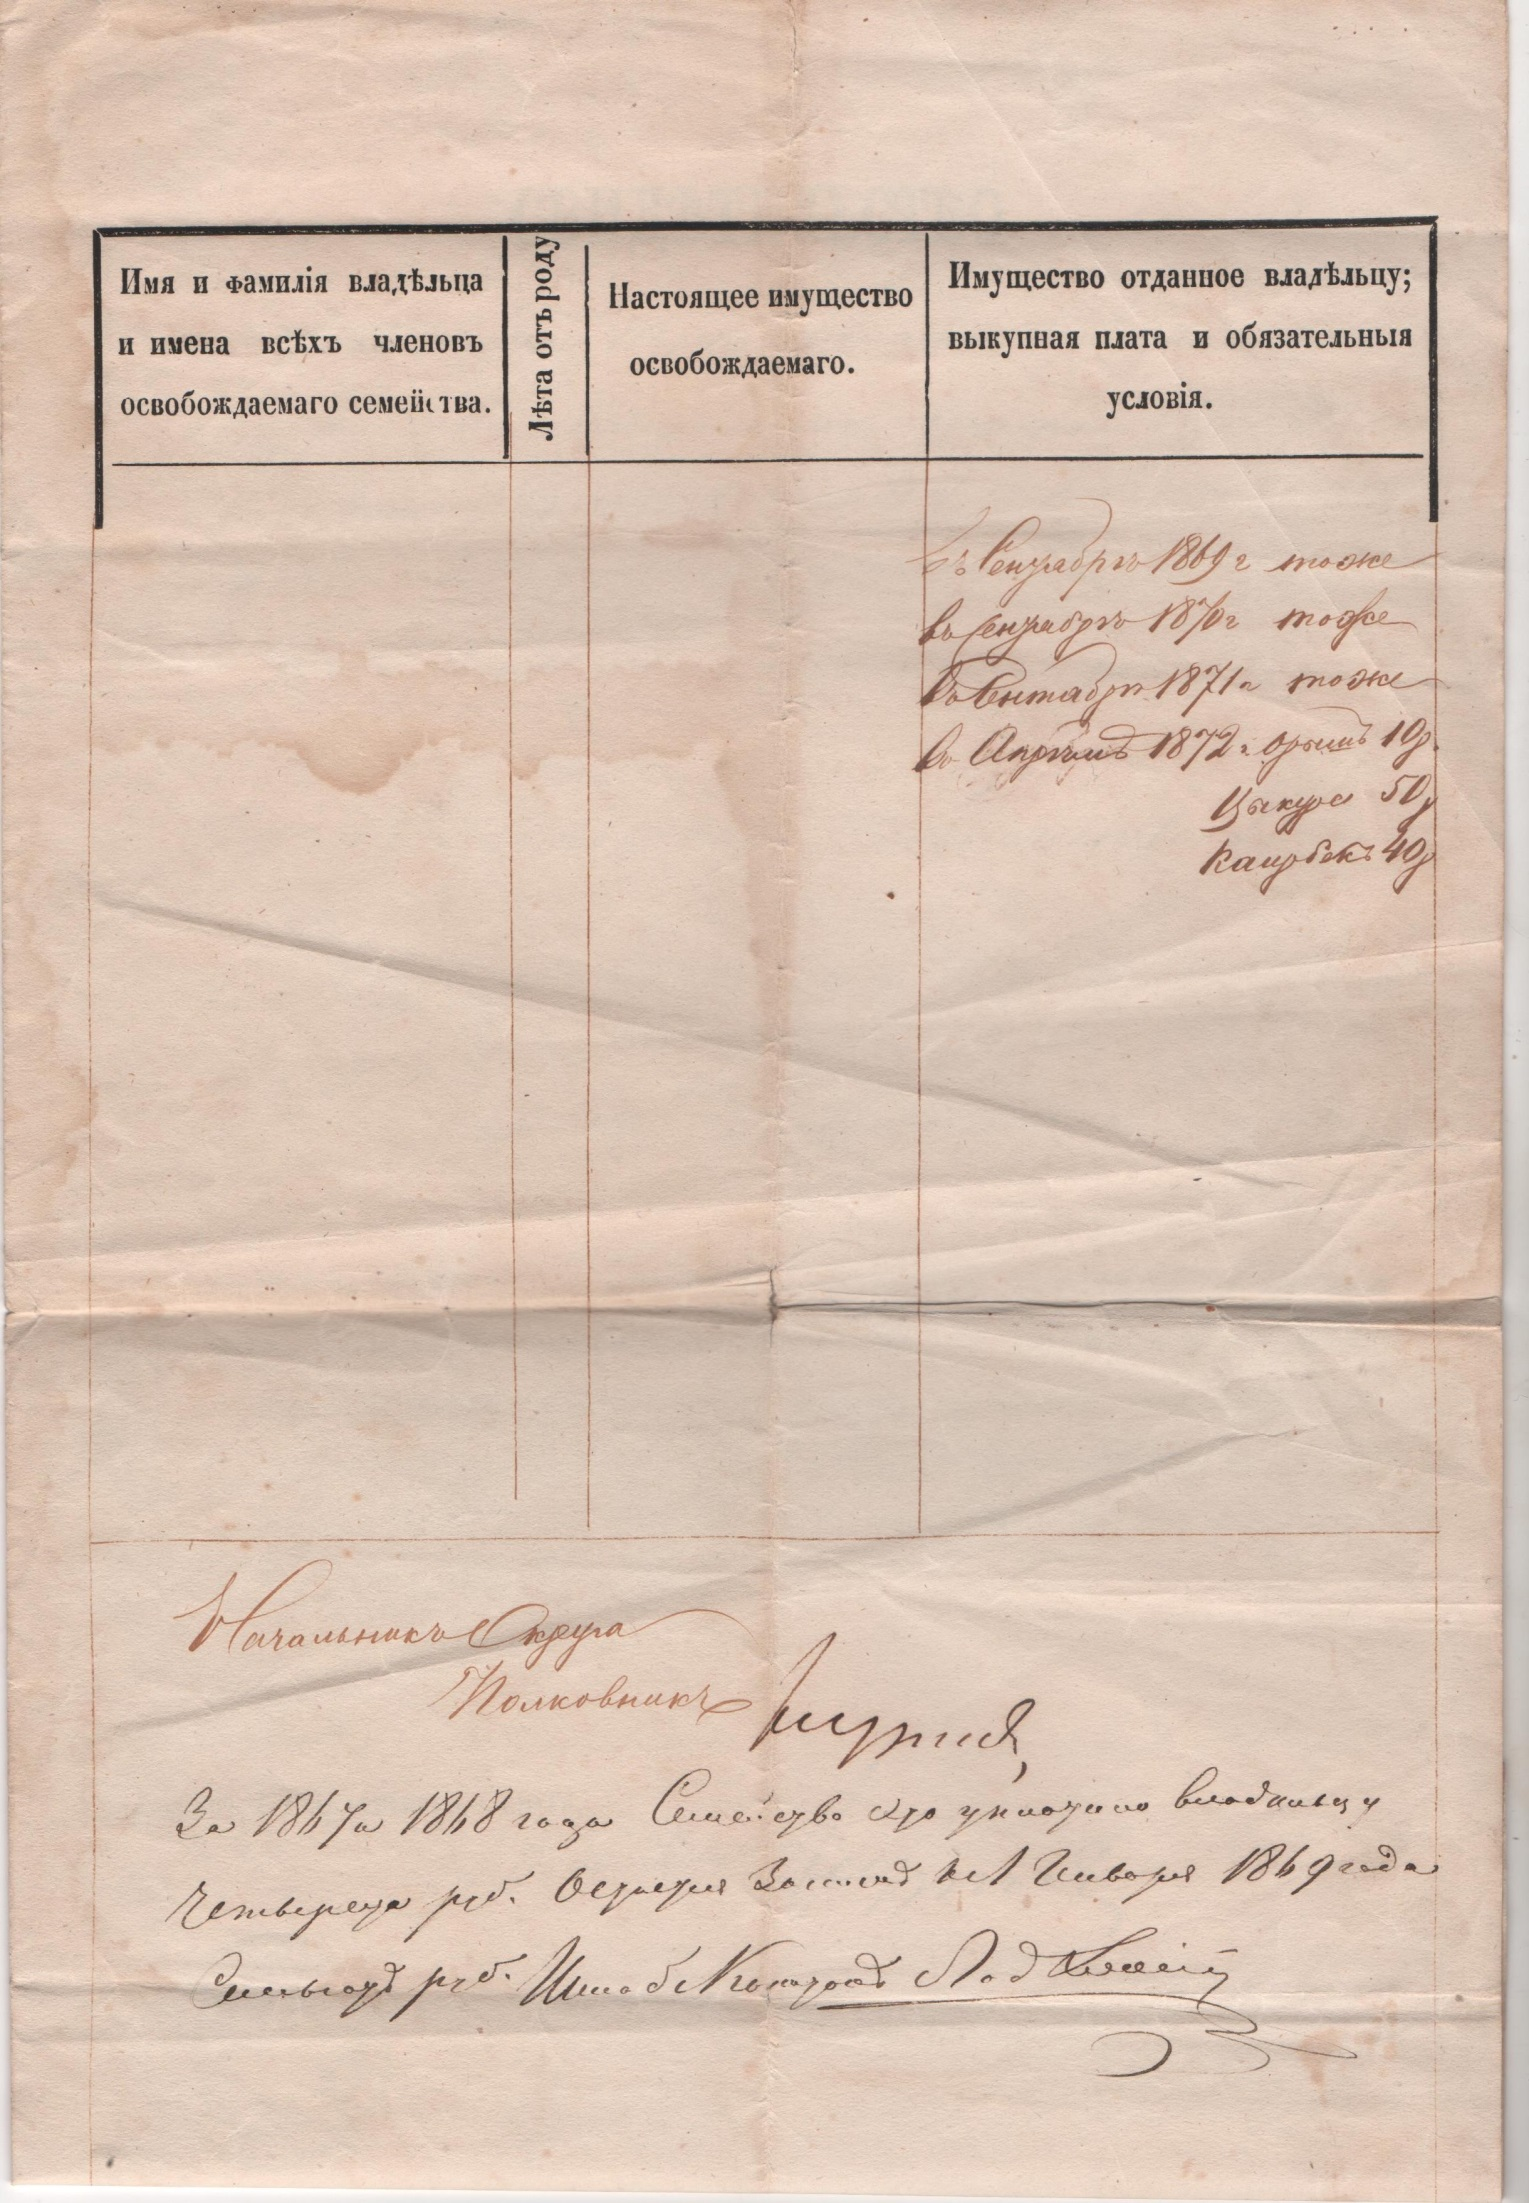 Имя и фамилія владѣльца
и имена всѣхъ членовъ
освобождаемаго семейства.
Лѣта отъ роду
Настоящее имущество
освобождаемаго.
Имущество отданное владѣльцу;
выкупная плата и обязательныя
условія.
въ Сентябрѣ 1869 г тоже
въ Сентябрѣ 1870 г тоже
въ Сентябрѣ 1871 г тоже
въ Апрѣлѣ 1872 г 10 р.
50 р
40 р
Начальникъ Округа
Полковникъ
За 1867 и 1868 года Семейство это уплатило владѣльцу
четыреста руб. Остается за нимъ къ 1 Января 1869 года
руб. Штабсъ Капитанъ